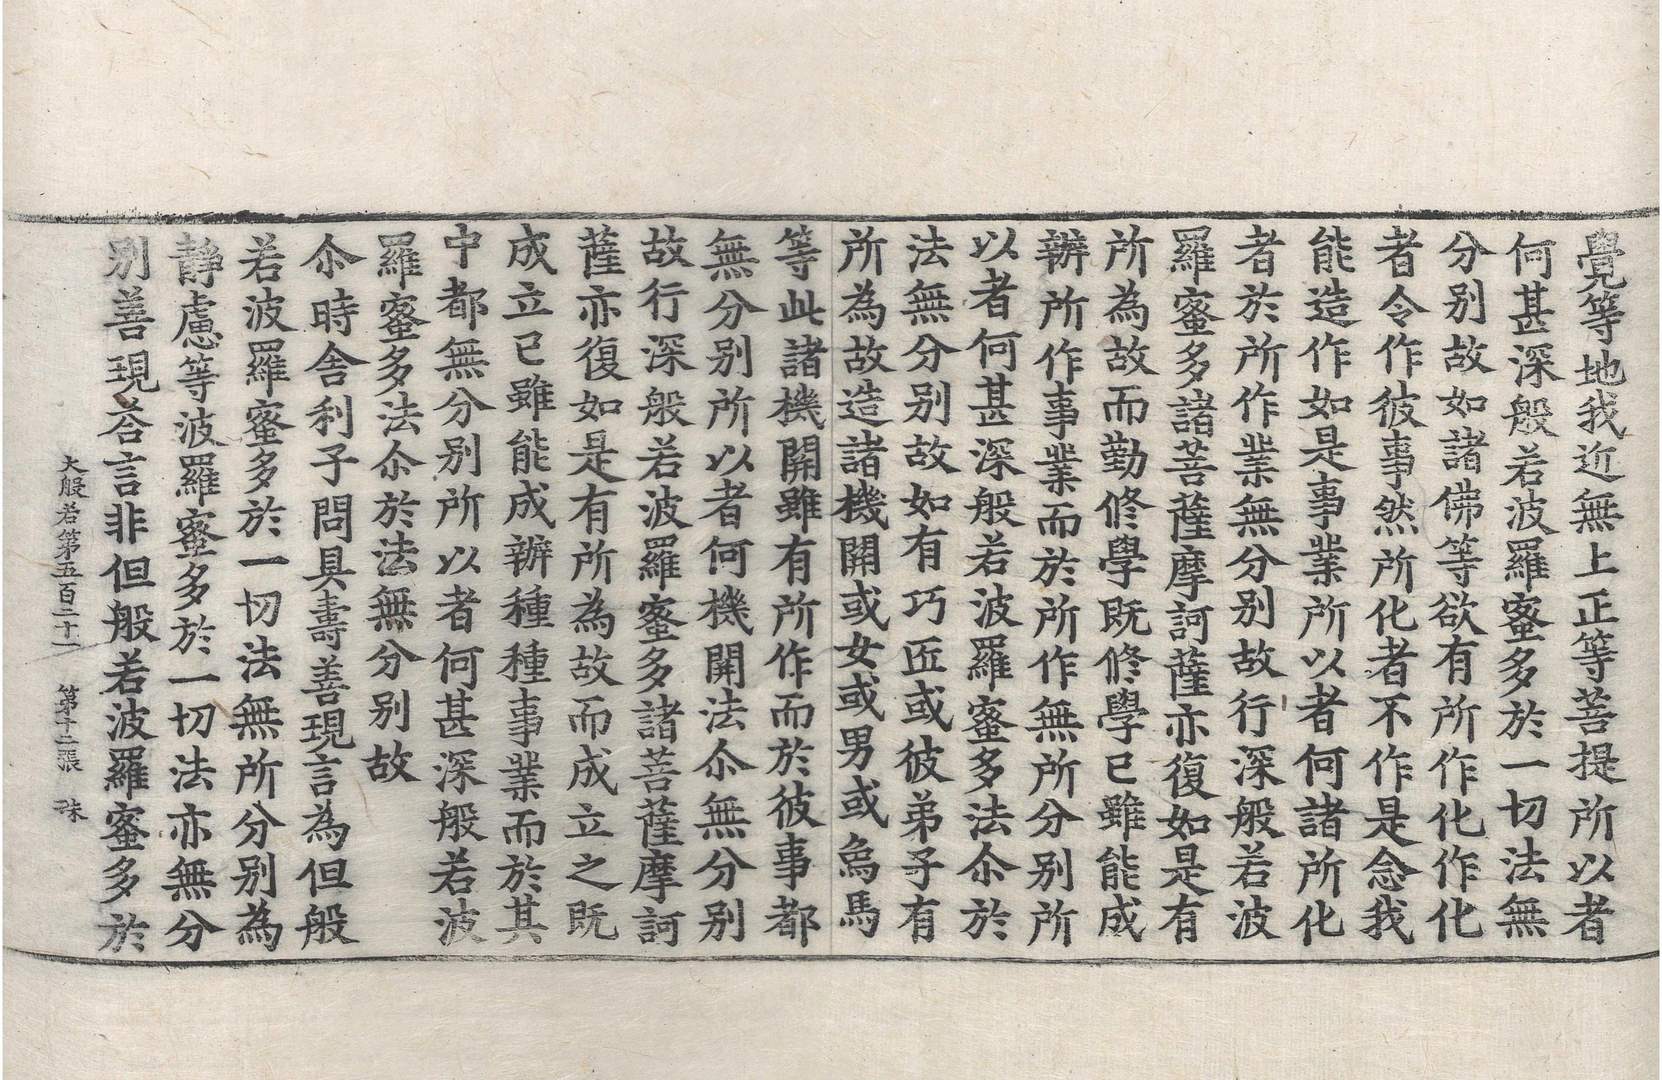 覺等地我近無上正等菩提所以者
何甚深般若波羅蜜多於一切法無
分别故如諸佛等欲有所作化作化
者令作彼事然所化者不作是念我
能造作如是事業所以者何諸所化
者於所作業無分别故行深般若波
羅蜜多諸菩薩摩訶薩亦復如是有
所為故而勤修學既修學已雖能成
辦所作事業而於所作無所分别所
以者何甚深般若波羅蜜多法尒於
法無分别故如有巧匠或彼弟子有
所為故造諸機關或女或男或烏馬
等此諸機關雖有所作而於彼事都
無分别所以者何機關法尒無分别
故行深般若波羅蜜多諸菩薩摩訶
薩亦復如是有所為故而成立之既
成立已雖能成辦種種事業而於其
中都無分别所以者何甚深般若波
羅蜜多法尒於法無分别故
尒時舍利子問具壽善現言為但般
若波羅蜜多於一切法無所分别為
靜慮等波羅蜜多於一切法亦無分
别善現荅言非但般若波羅蜜多於
大般若第五百二十一 第十二張 珠